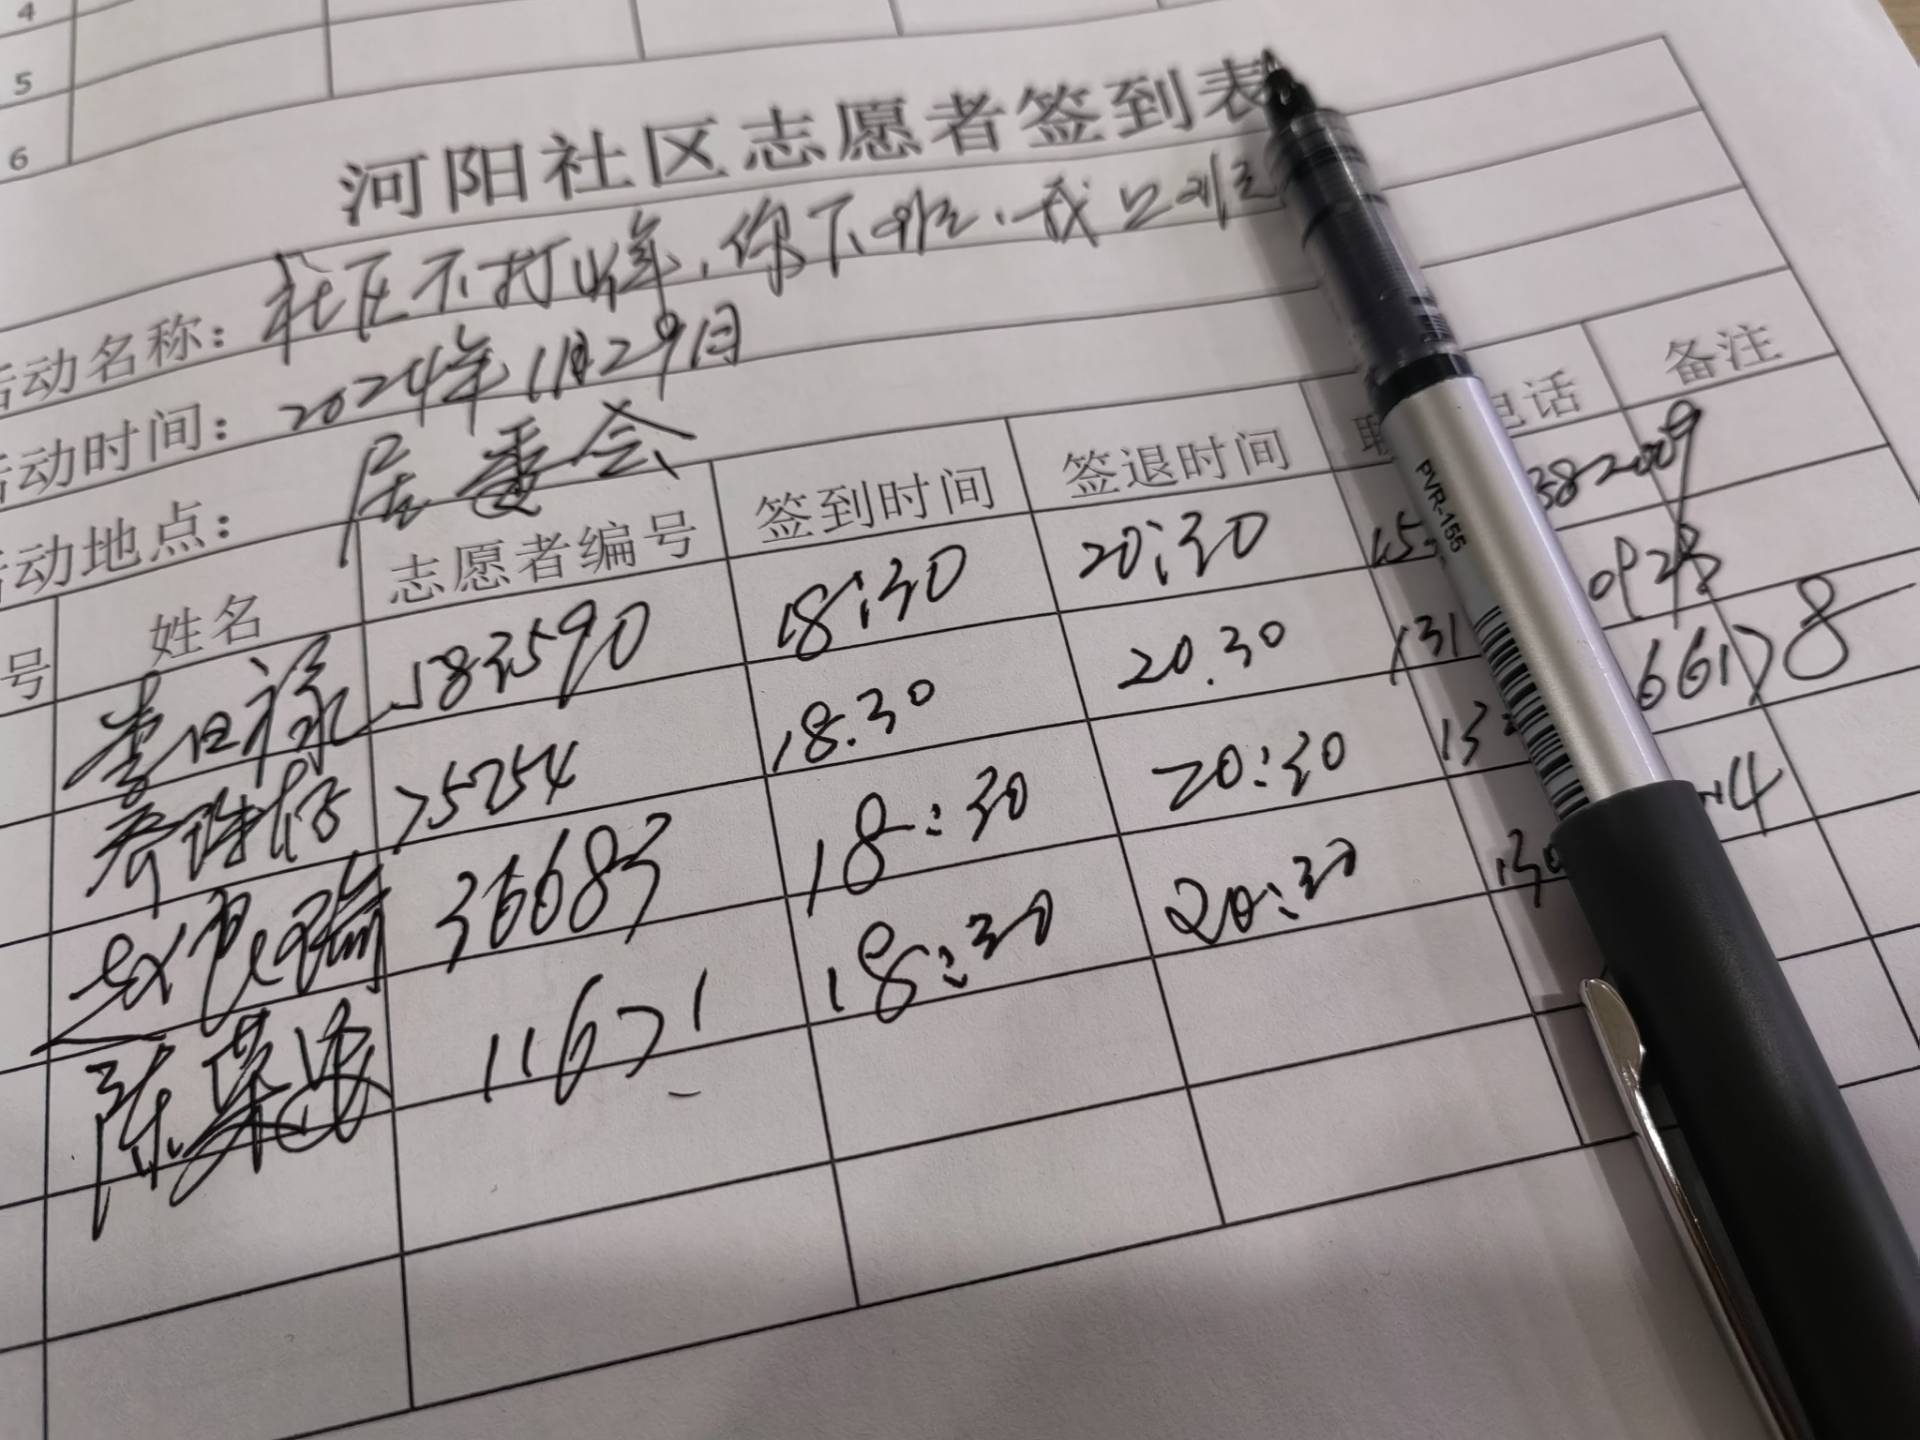 4
5
6
河阳社区志愿者签到表
活动名称：社区不打烊，你下班、我上班
活动时间：2024年1月29日
活动地点：居委会
号 姓名 志愿者编号 签到时间 签退时间 电话 备注
183590 18:30 20:30 382009
75254 18.30 20.30 131
赵 36683 18:30 20:30 13 66178
陈 11671 18:30 20:30 130 14
PVR-155